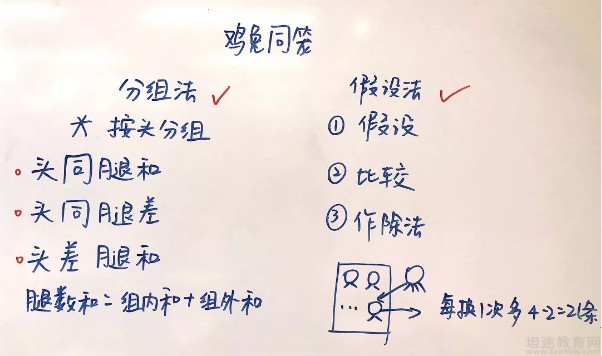 鸡兔同笼
分组法 ✓
* 按头分组
头同腿和
头同腿差
头差腿和
腿数和=组内和+组外和
假设法 ✓
① 假设
② 比较
③ 作除法
...
每换1次多4-2=2条
坦途教育网